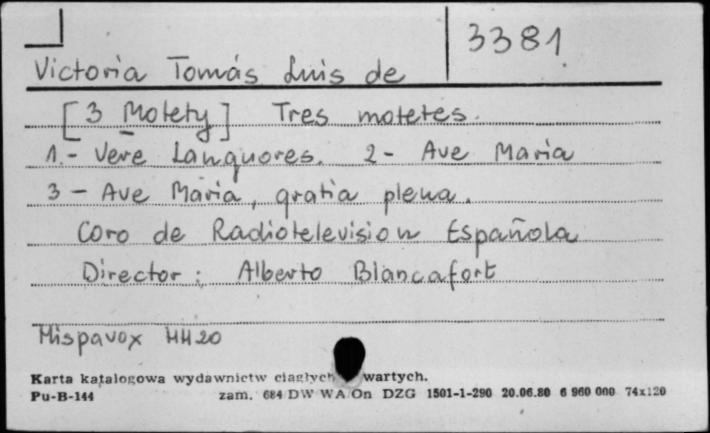 3381
Victoria Tomás Luis de
[3 Motety] Tres motetes.
1.- Vere Languores. 2- Ave Maria
3- Ave Maria, gratia plena.
Coro de Radiotelevision Española
Director: Alberto Blancafort
Hispavox HH20
Karta katalogowa wydawnictw ciągłych wartych.
Pu-B-144 zam. 684 DW WA/On DZG 1501-1-290 20.06.80 6 960 000 74x120